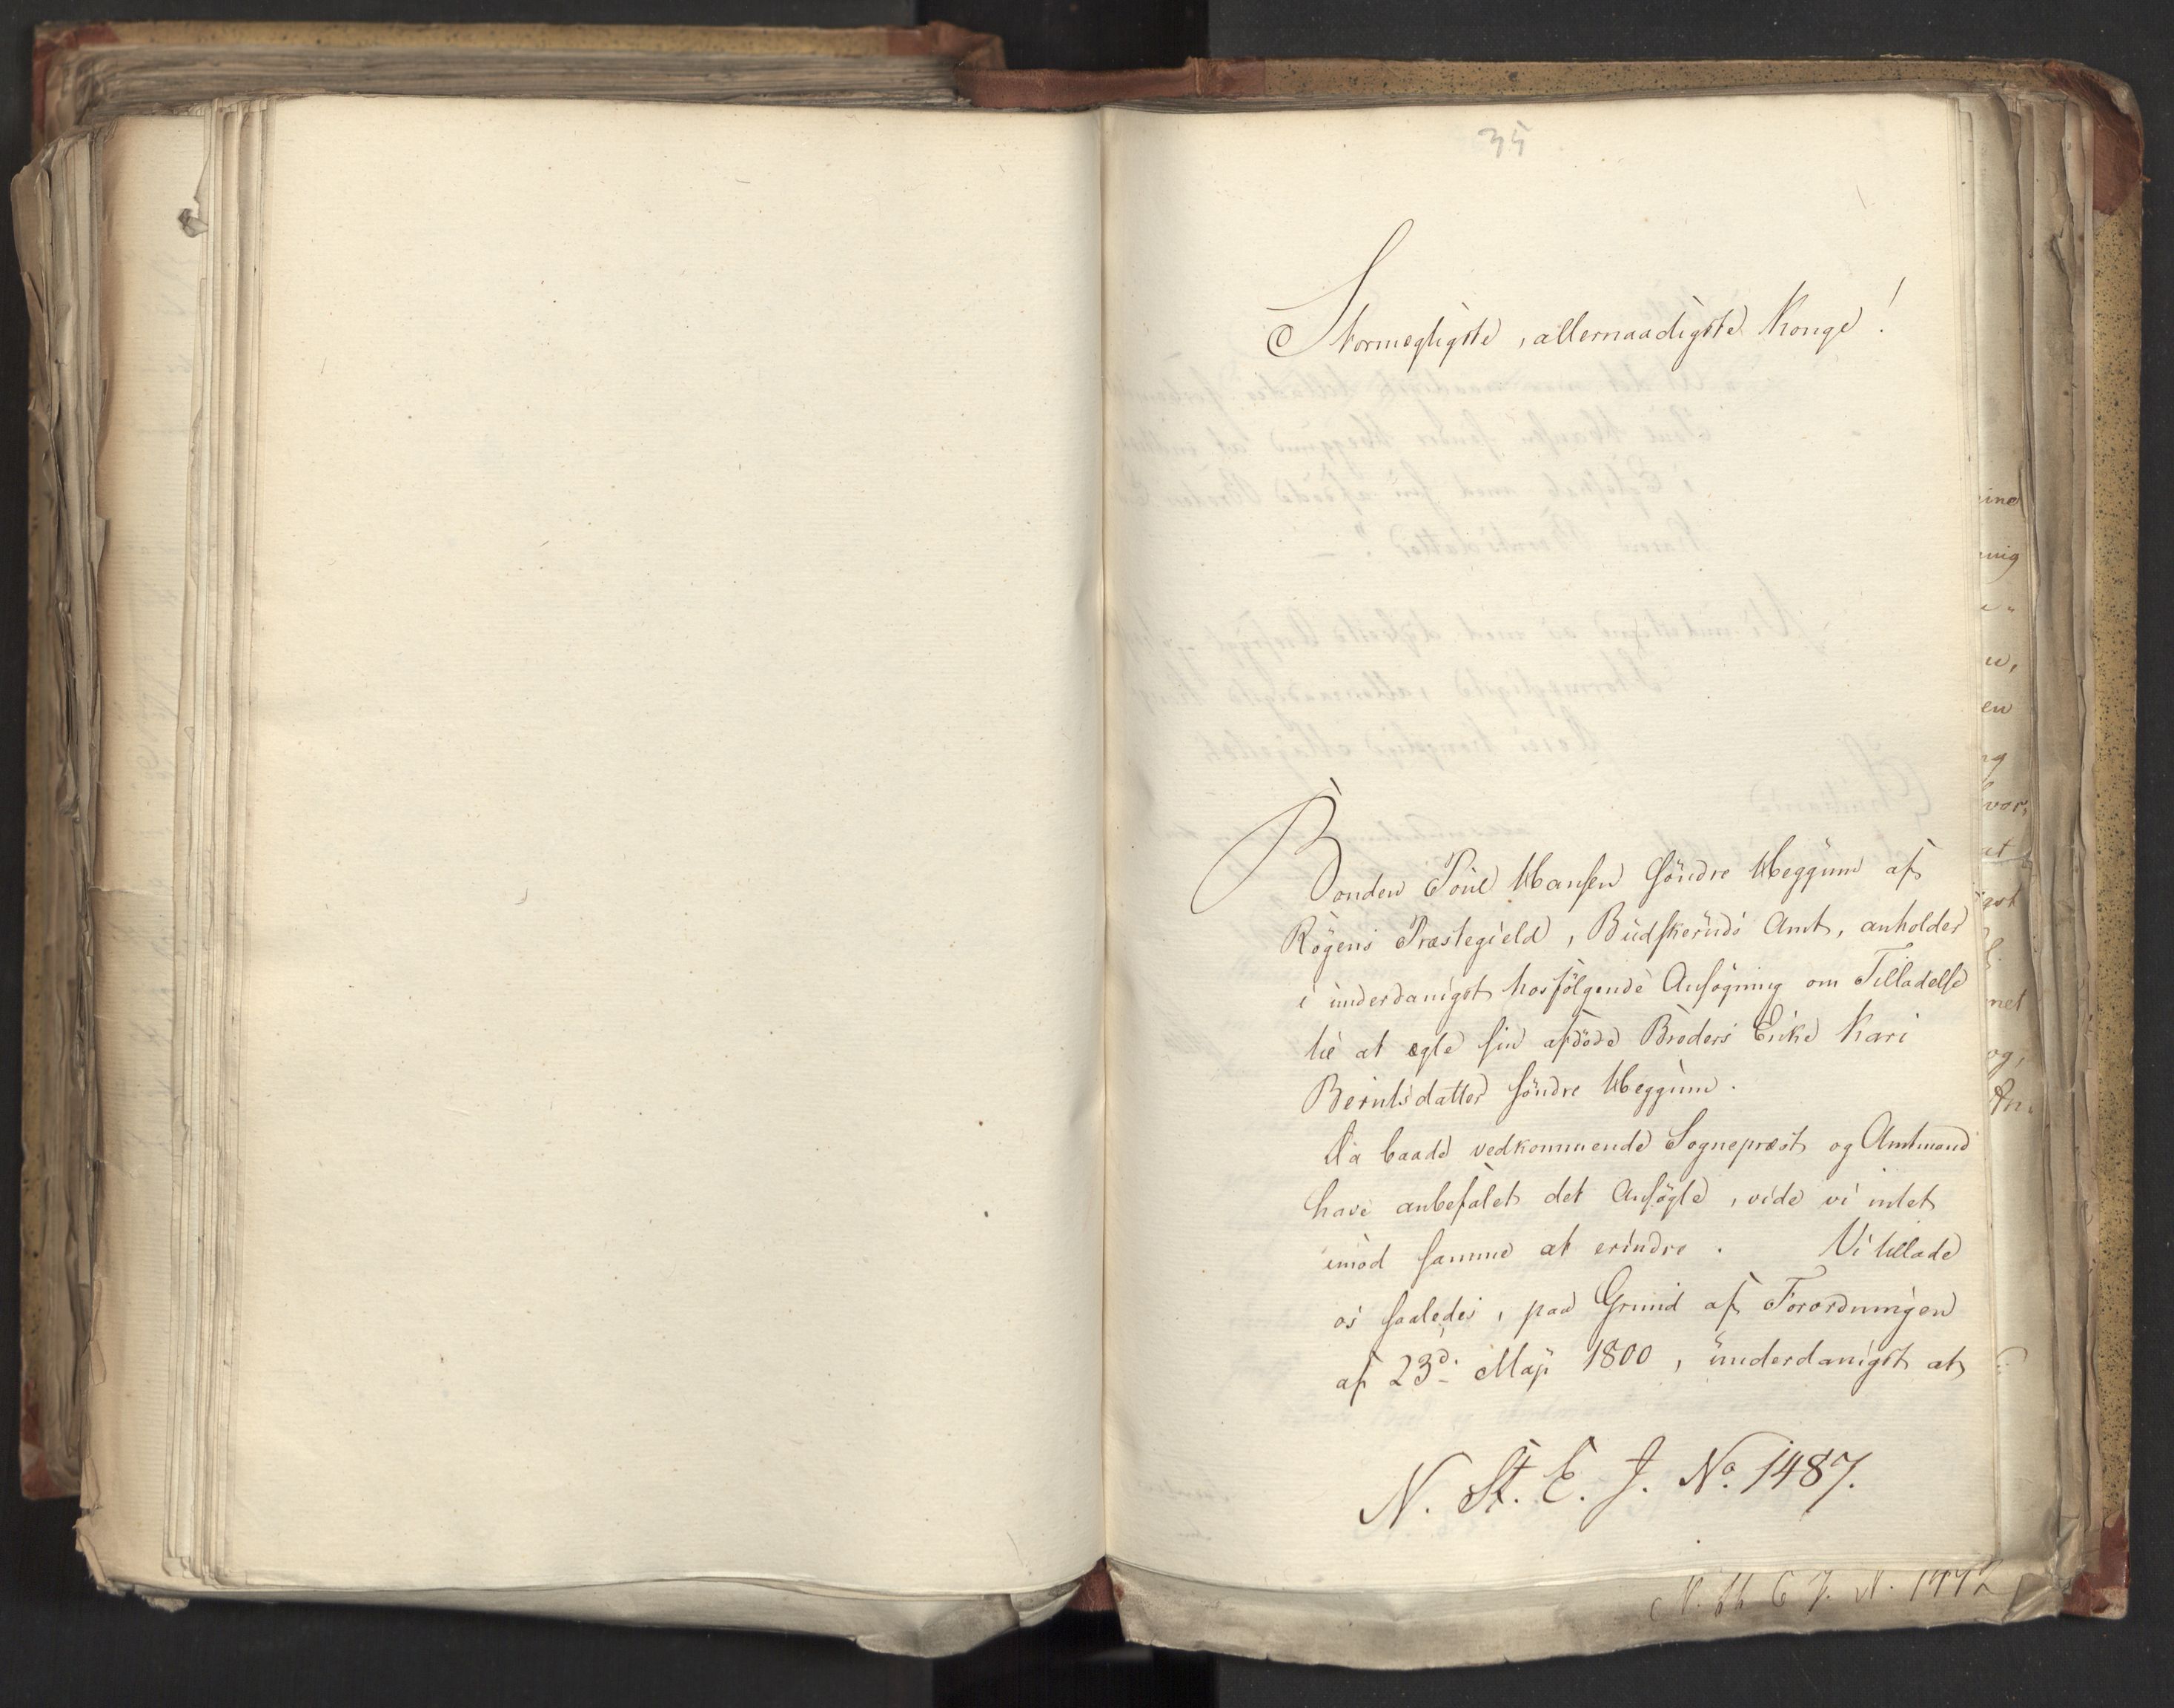 35
Stormægtigste, allernaadigste Konge!
Bonden Poul Hansen Söndre Heggum af
Rögens Præstegield, Budskeruds Amt, anholder
i underdanigst hosfölgende Ansögning om Tilladelse
til at ægte sin afdöde Broders Enke Kari
Berntsdatter Söndre Heggum.
Da baade vedkommende Sognepræst og Amtmand
have anbefalet det Ansögte, vide vi intet
imod samme at erindre. Vi tillade
os saaledes, paa Grund af Forordningen
af 23d. Maji 1800, underdanigst at
N. St. E. J. No. 1487.